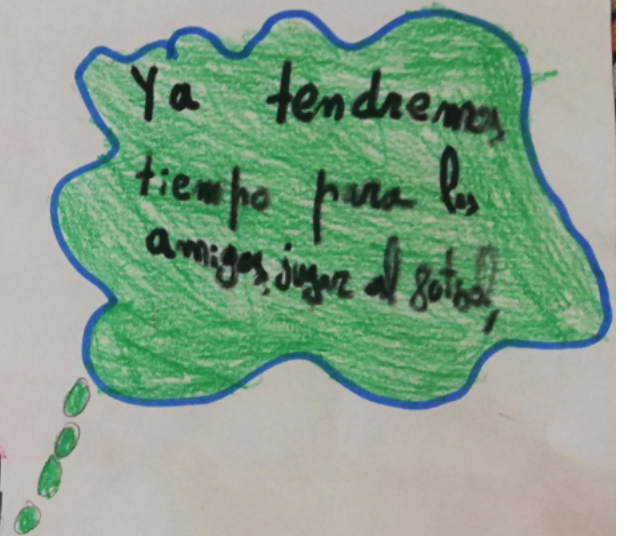 Ya tendremos
tiempo para los
amigos, jugar al futbol,